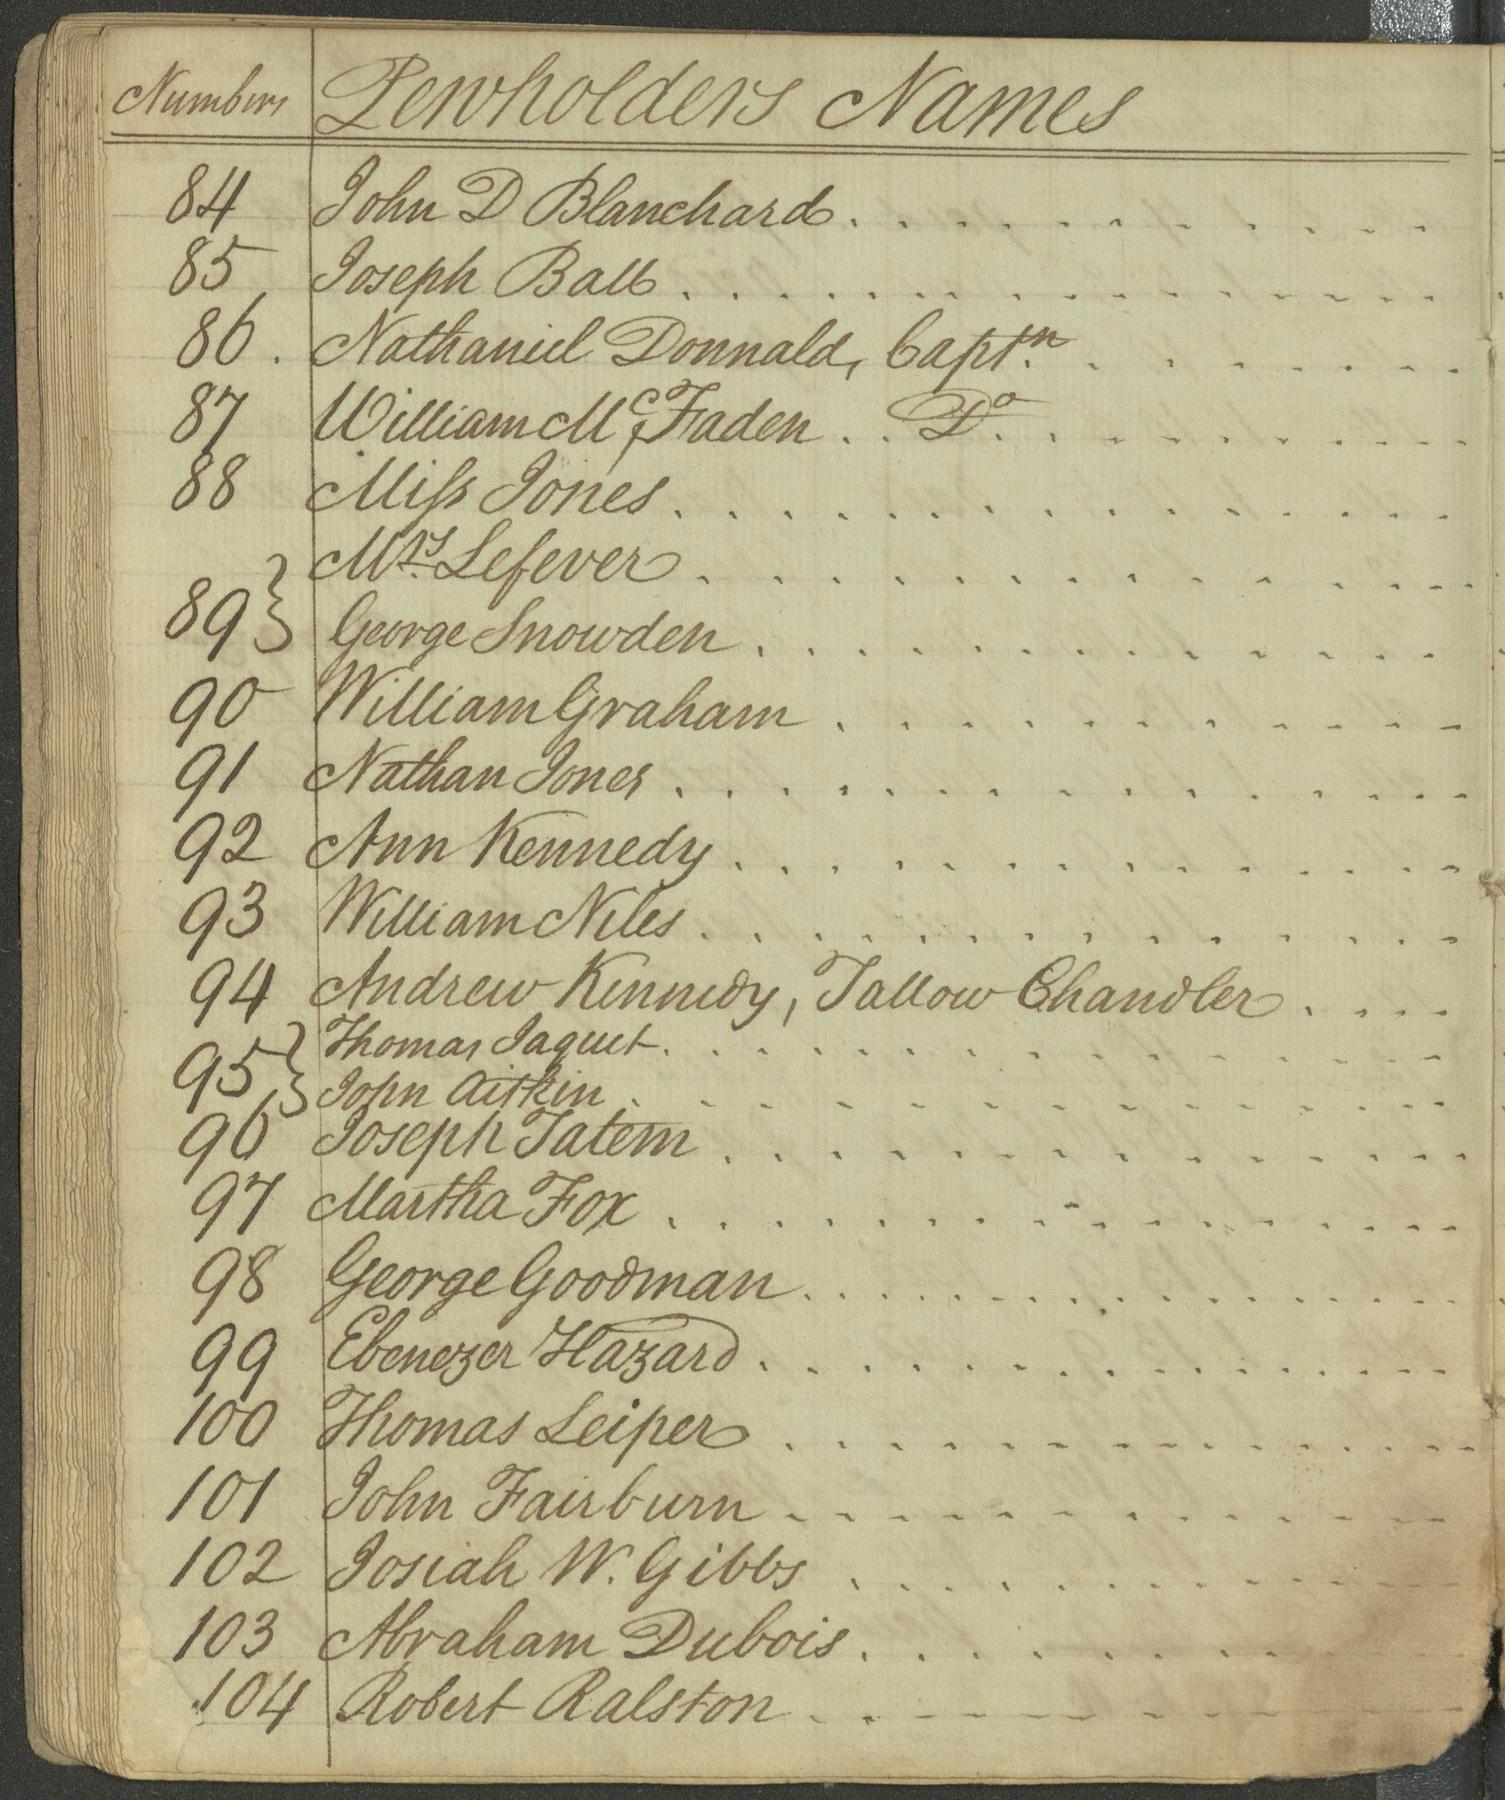 Numbers Pewholders Names
84 John D Blanchard
85 Joseph Ball
86. Nathaniel Donnald, Captn.
87 William McFaden Do.
88 Miss Jones
Mrs. Lefever
89 } George Snowden
90 William Graham
91 Nathan Jones
92 Ann Kennedy
93 William Niles
94 Andrew Kennedy, Tallow Chandler
95 } Thomas Jaquet
John Aitkin
96 Joseph Tatem
97 Martha Fox
98 George Goodman
99 Ebenezer Hazard
100 Thomas Leiper
101 John Fairburn
102 Josiah W. Gibbs
103 Abraham Dubois
104 Robert Ralston